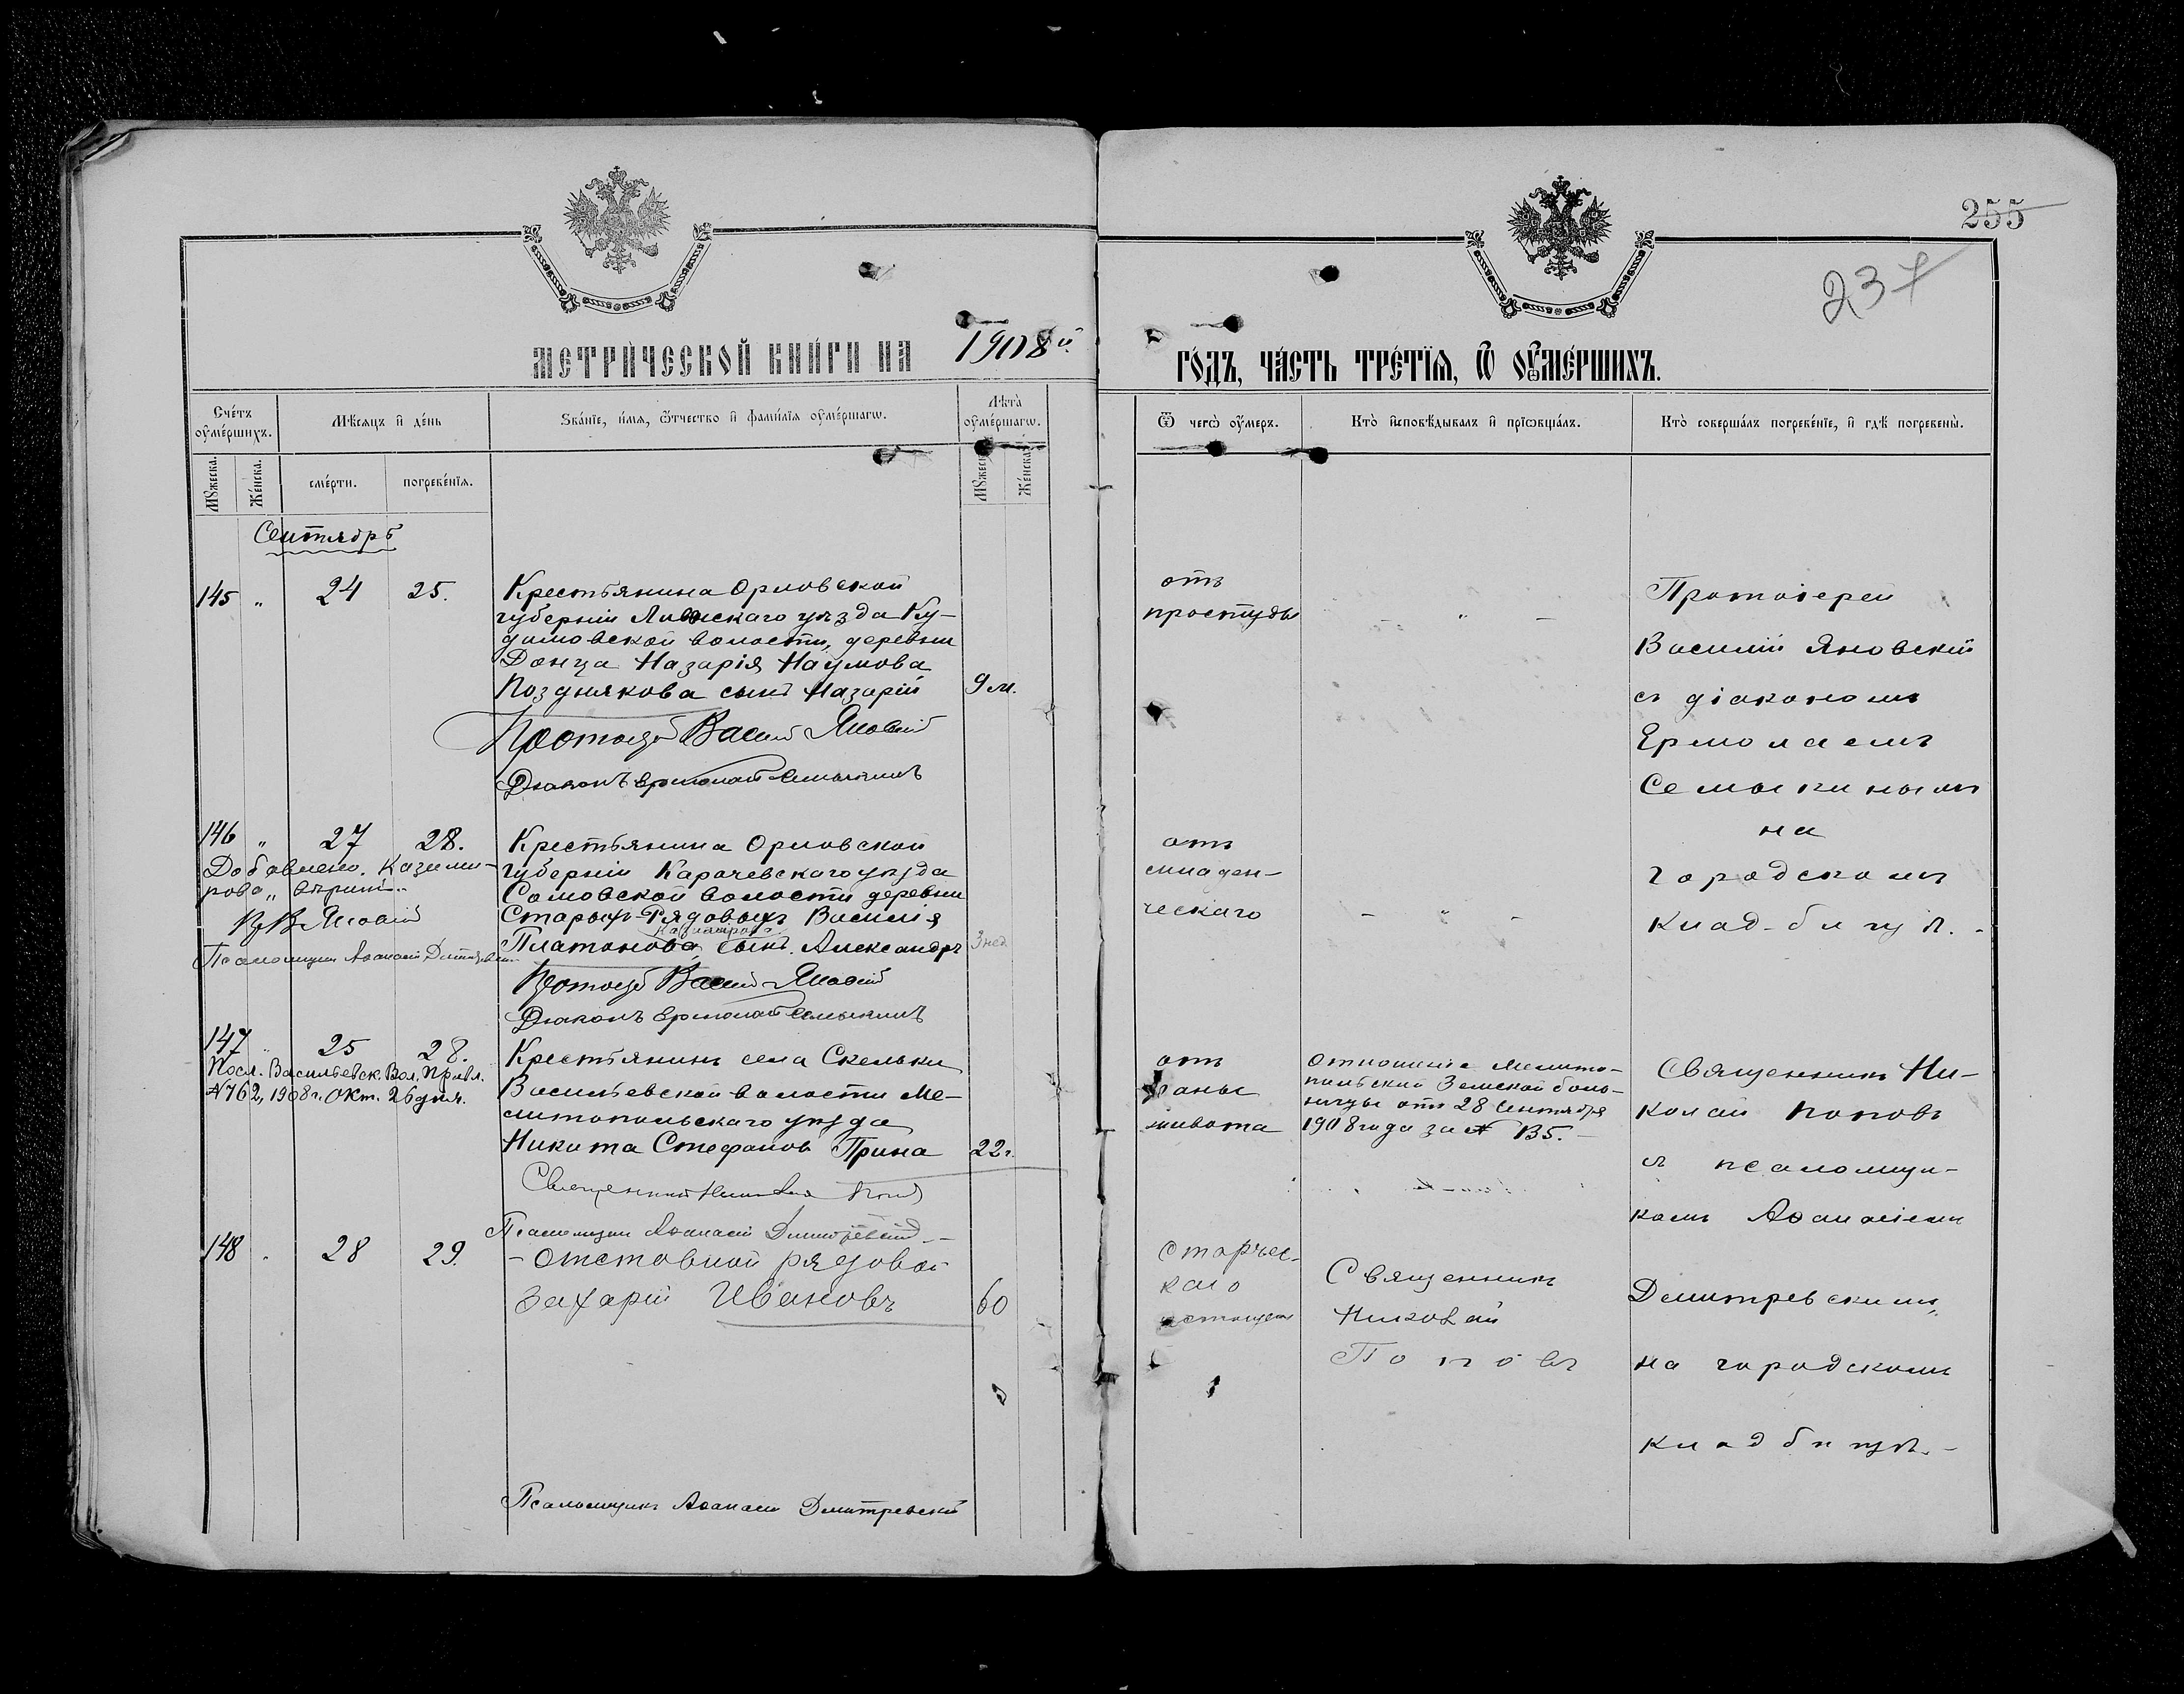 255
237
МЕТРИ́ЧЕСКОЙ КНИ́ГИ НА 1908й
ГО́ДЪ, ЧА́СТЬ ТРЕ́ТІѦ, Ѿ ОУМЕ́РШИХЪ.
Сче́тъ оуме́ршихъ.
Мѣ́сяцъ и де́нь
Зва́нїе, и́мѧ, ѿчество и фами́лїѧ оуме́ршагѡ.
Лѣта̀ оуме́ршагѡ.
Ѿ чегѡ̀ оу́меръ.
Кто̀ и҆сповѣ́дывалъ и҆ прїѡбща́лъ.
Кто̀ соверша́лъ погребе́нїе, и҆ гдѣ̀ погребены̀.
Мꙋжеска.
Же́нска.
сме́рти.
погребе́нїѧ.
Мꙋжеска.
Же́нска.
Сентябрь
145 „ 24 25.
Крестьянина Орловской
губерніи Ливенскаго уѣзда Ку-
домовской волости, деревни
Донца Назарія Наумова
Позднякова сынъ Назарій 9 м.
Протоіерей Василій Яновскій
Діаконъ Ермолай Семыкинъ
отъ
простуды
– „ –
Протоіерей
Василій Яновскій
съ діакономъ
Ермолаемъ
Семыкинымъ
на
городскомъ
клад-бищѣ.-
146 „ 27 28.
Добавлено. Казими-
рова „ вѣрить.
Пр. В. Яновскій
Псаломщикъ Аѳанасій Дмитревскій
Крестьянина Орловской
губерніи Карачевскаго уѣзда
Сомовской волости деревни
Старыхъ-Рядовыхъ Василія
Казимирова
Платонова, сынъ. Александръ 3 нед.
Протоіерей Василій Яновскій
Діаконъ Ермолай Семыкинъ
отъ
младен-
ческаго
– „ –
147 „ 25 28.
Посл. Васильевск. Вол. Правл.
№762, 1908 г. Окт. 26 дня.
Крестьянинъ села Скельки
Васильевской волости Ме-
литопольскаго уѣзда
Никита Стефановъ Прина 22 г.
Священникъ Николай Поповъ
Псаломщикъ Аѳанасій Дмитревскій
отъ
раны
живота
Отношеніе Мелито-
польской Земской боль-
ницы отъ 28 Сентября
1908 года за № 135.–
Священникъ Ни-
колай Поповъ
съ псаломщи-
комъ Аѳанасіемъ
Дмитревскимъ
на городскомъ
кладбищѣ.–
148 „ 28 29.
- Отставной рядовой
Захарій Ивановъ 60
Старчес-
каго
истощен
Священникъ
Николай
Поповъ
Псаломщикъ Аѳанасій Дмитревскій